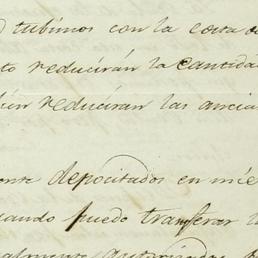 tubimos con la costa
to reducirán la cantida
bien reduciran las ancia
ente depocitados en mi
uando puedo transferar
almente autorizados